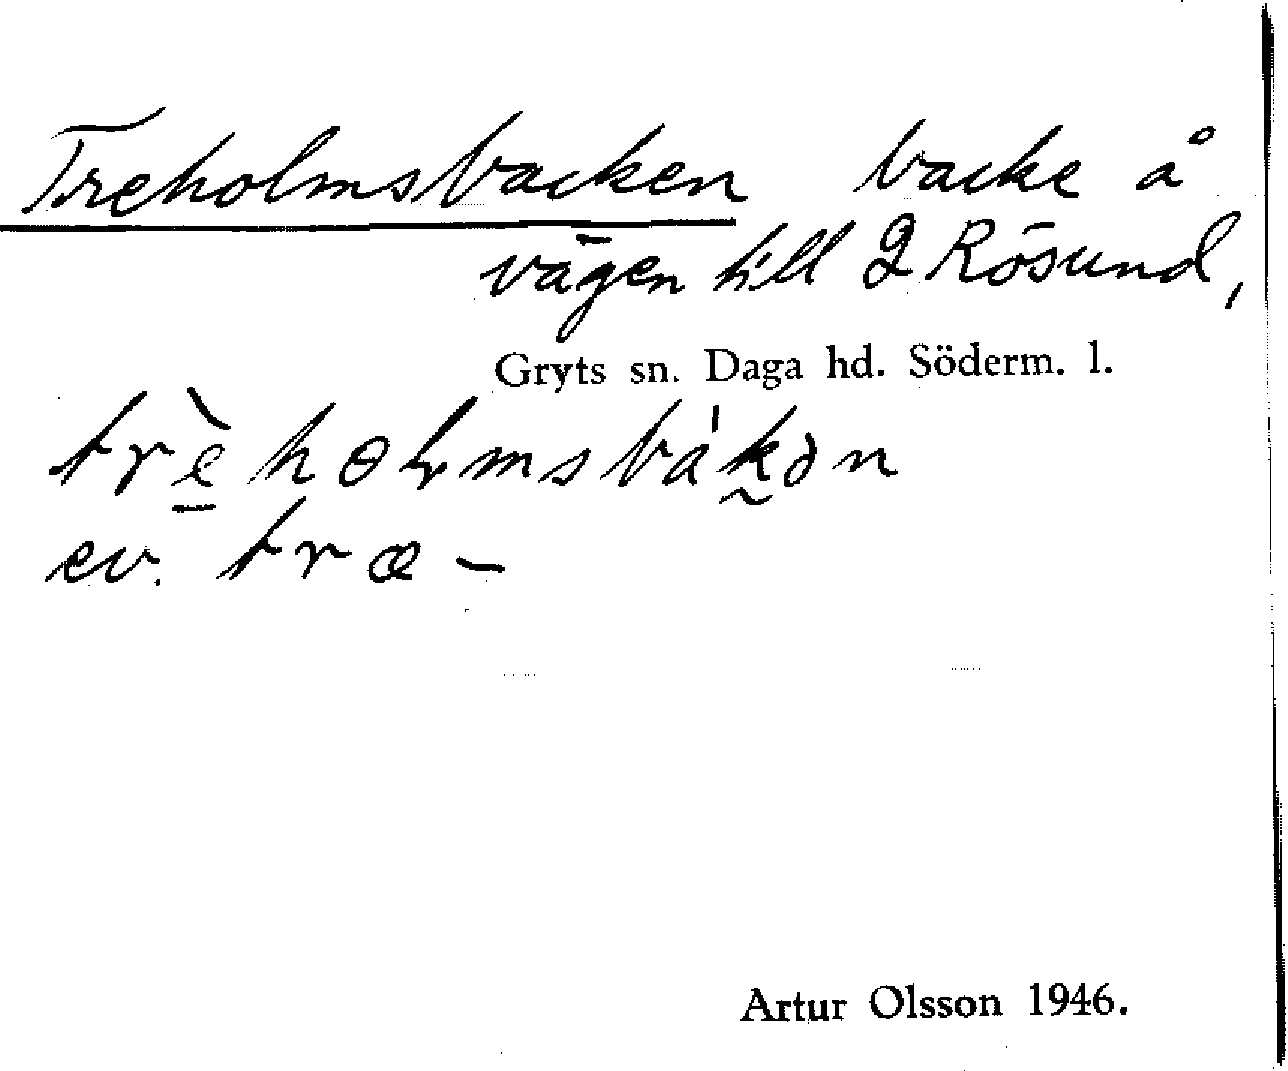 Treholmsbacken backe å
vägen till 2 Rösund,
Gryts sn. Daga hd. Söderm. l.
trèholmsbákən
ev. træ-
Artur Olsson 1946.